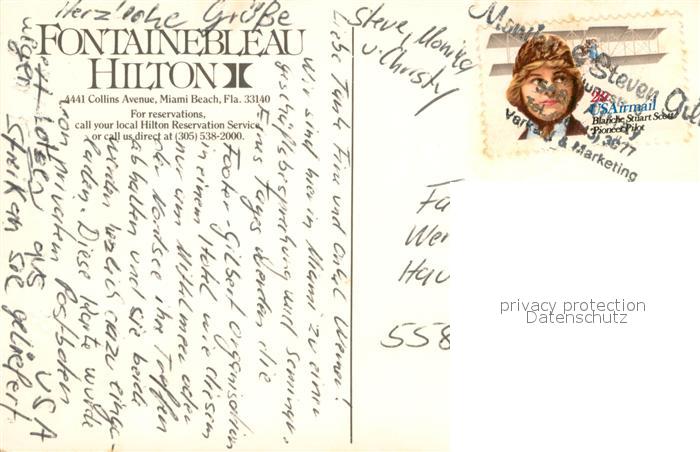 FONTAINEBLEAU
HILTON
4441 Collins Avenue, Miami Beach, Fla. 33140
For reservations,
call your local Hilton Reservation Service
or call us direct at (305) 538-2000.
Liebe Tante und Onkel Werner!
Wir sind hier in Miami zu einer
Geschäftsbesprechung und Seminar.
Eines Tages werden die
Footer-Gilbert Organisation
in einem Hotel wie diesem
nur am Mittelmeer oder
der Nordsee ihr Treffen
abhalten und sie beide
werden herzlich dazu einge-
laden. Diese Karte wurde
von privatem Postboten
H. Lotsen aus USA
wegen Streiken sie geliefert
Herzliche Grüße
Steve, Monika
u. Christy
Steven Gil
Verkauf & Marketing
28
USAirmail
Blanche Stuart Scott
Pioneer Pilot
Fa
Wer
Hau
558
privacy protection
Datenschutz